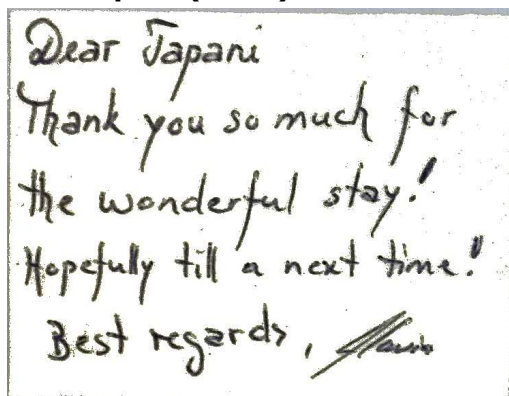 Dear Japani
Thank you so much for
the wonderful stay!
Hopefully till a next time!
Best regards,